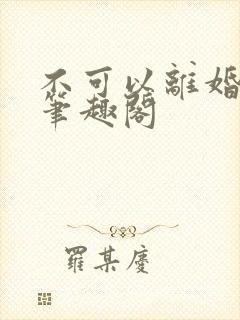 不可以離婚
筆趣閣
羅某慶